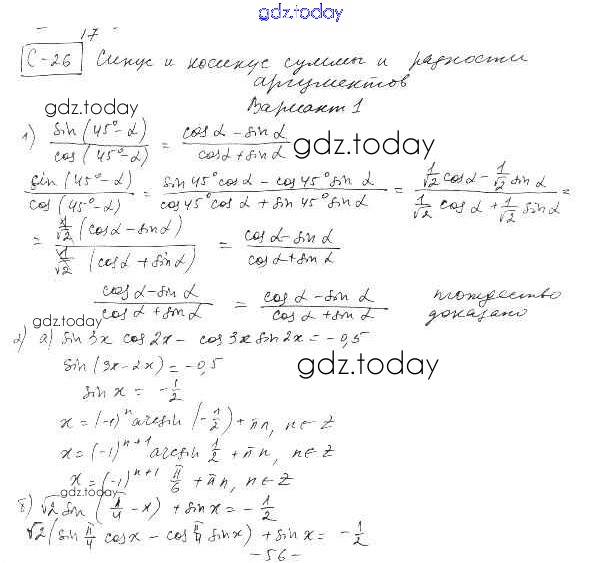 gdz.today
17
С-26 Синус и косинус суммы и разности
аргументов
gdz.today Вариант 1
1) sin(45°-α)/cos(45°-α) = (cosα - sinα)/(cosα + sinα) gdz.today
sin(45°-α)/cos(45°-α) = (sin45°cosα - cos45°sinα)/(cos45°cosα + sin45°sinα) = (1/√2 cosα - 1/√2 sinα)/(1/√2 cosα + 1/√2 sinα) =
= (1/√2 (cosα - sinα))/(1/√2 (cosα + sinα)) = (cosα - sinα)/(cosα + sinα)
(cosα - sinα)/(cosα + sinα) = (cosα - sinα)/(cosα + sinα) тождество
gdz.today доказано
2) а) sin3x cos2x - cos3x sin2x = -0,5
sin(3x-2x) = -0,5 gdz.today
sin x = -1/2
x = (-1)^n arcsin(-1/2) + πn, n∈Z
x = (-1)^(n+1) arcsin 1/2 + πn, n∈Z
x = (-1)^(n+1) π/6 + πn, n∈Z
gdz.today
б) √2 sin(π/4 - x) + sin x = -1/2
√2(sin π/4 cos x - cos π/4 sin x) + sin x = -1/2
-56-